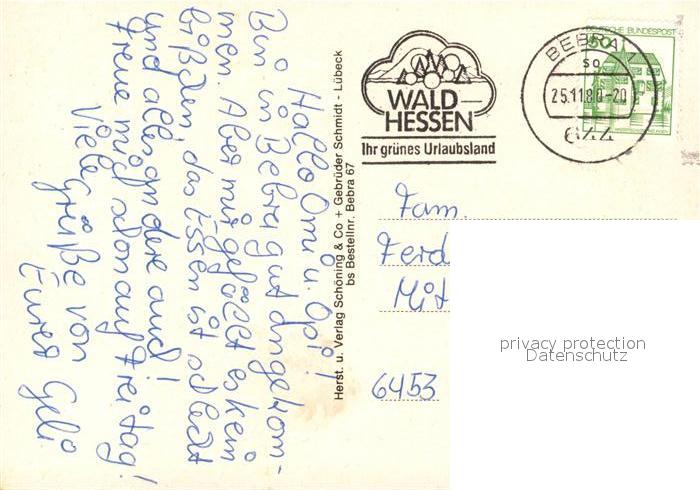 Hallo Omi u. Opi!
Bin in Bebra gut angekom-
men. Aber mir gefällt es kein
bißchen, das Essen ist schlecht
und alles andere auch!
Freue mich schon auf Freitag!
Viele Grüße von
Eurer Geli
Herst. u. Verlag Schöning & Co + Gebrüder Schmidt - Lübeck
bs Bestellnr. Bebra 67
WALD-
HESSEN
Ihr grünes Urlaubsland
BEBRA
so
25.11.80-20
644
50
DEUTSCHE BUNDESPOST
Fam.
Ferd
Mit
6453
privacy protection
Datenschutz